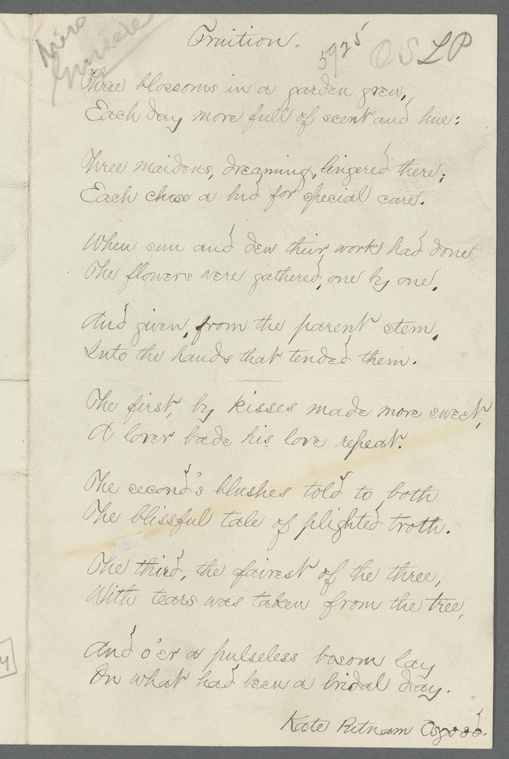 Fruition.
5925
OSLP
Three blossoms in a garden grew,
Each day more full of scent and hue:
Three maidens, dreaming, lingered there;
Each chose a bud for special care.
When sun and dew their work had done
The flowers were gathered, one by one,
And given, from the parent stem,
Into the hands that tended them.
The first, by kisses made more sweet,
A lover bade his love repeat.
The second's blushes told to both
The blissful tale of plighted troth.
The third, the fairest of the three,
With tears was taken from the tree,
And o'er a pulseless bosom lay
On what had been a bridal day.
Kate Putnam Osgood.